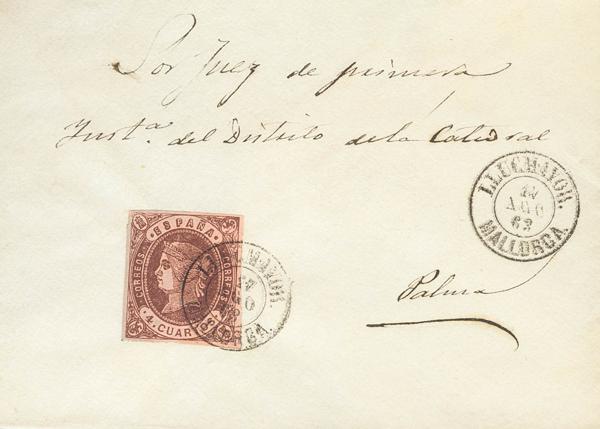 Sor Juez de primera
Inst.ª del Distrito de la Catedral
LLUCMAYOR.
AGO
62
MALLORCA
Palma
ESPAÑA
CORREOS
CORREOS
4 CUARTOS
LLUCMAYOR.